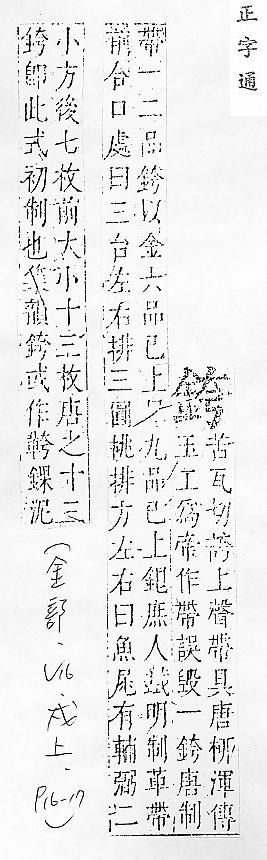 正字通
銙
苦瓦切誇上聲帶具唐柳渾傳
玉工爲帝作帶誤毀一銙唐制
帶一二品銙以金六品已上犀九品已上銀庶人鐵明制革帶
前合口處曰三台左右排三圓桃排方左右曰魚尾有輔弼二
小方後七枚前大小十三枚唐之十三
銙卽此式初制也集韻銙或作錁泥
(金部．V16．戌上．P16-17)